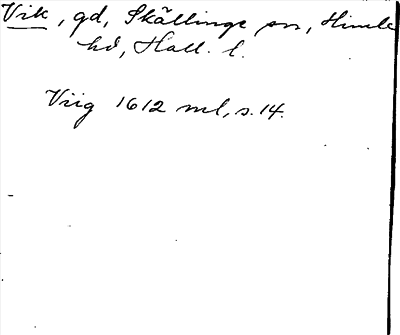 Vik, gd, Skällinge sn, Himle
hd, Hall. l.
Viig 1612 ml, s. 14.